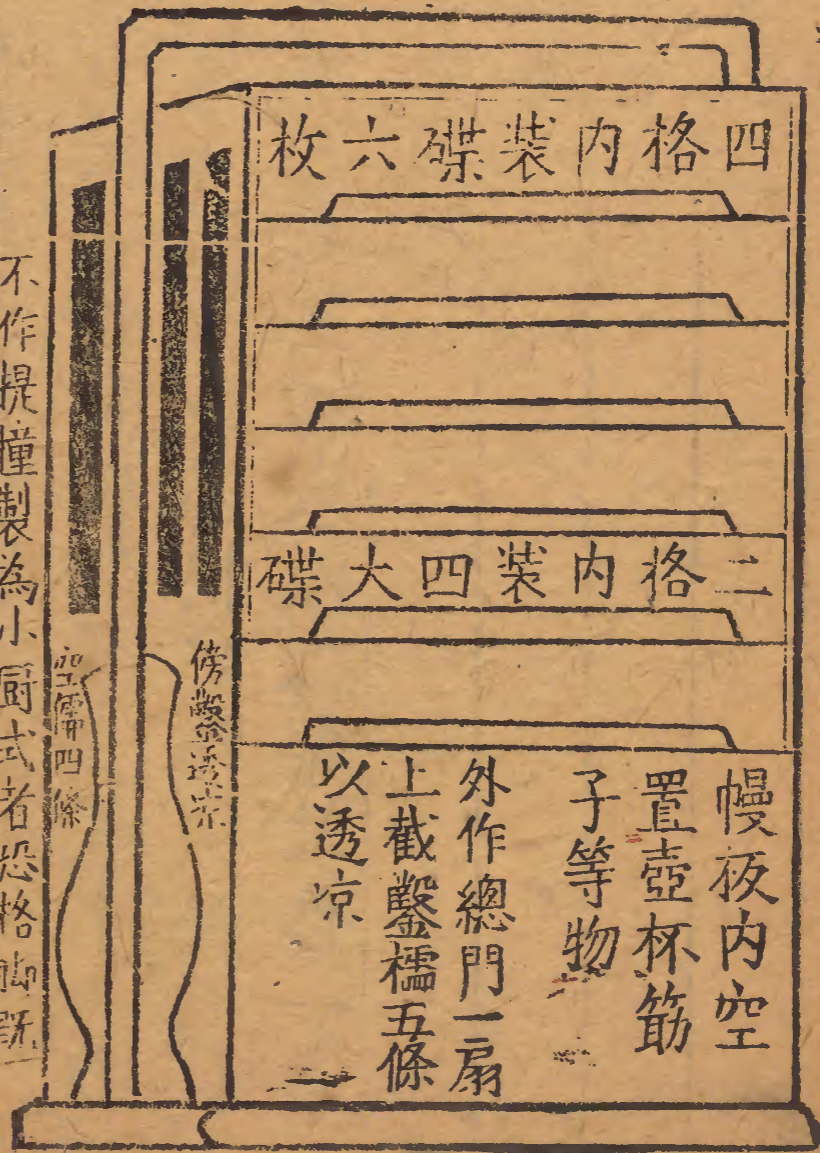 四格内装碟六枚
二格内装四大碟
幔板内空
置壺杯筯
子等物
外作總門一扇
上截鑿檽五條
以透凉
傍鑿透凉
空檽四條
不作提撞製為小厨式者恐格